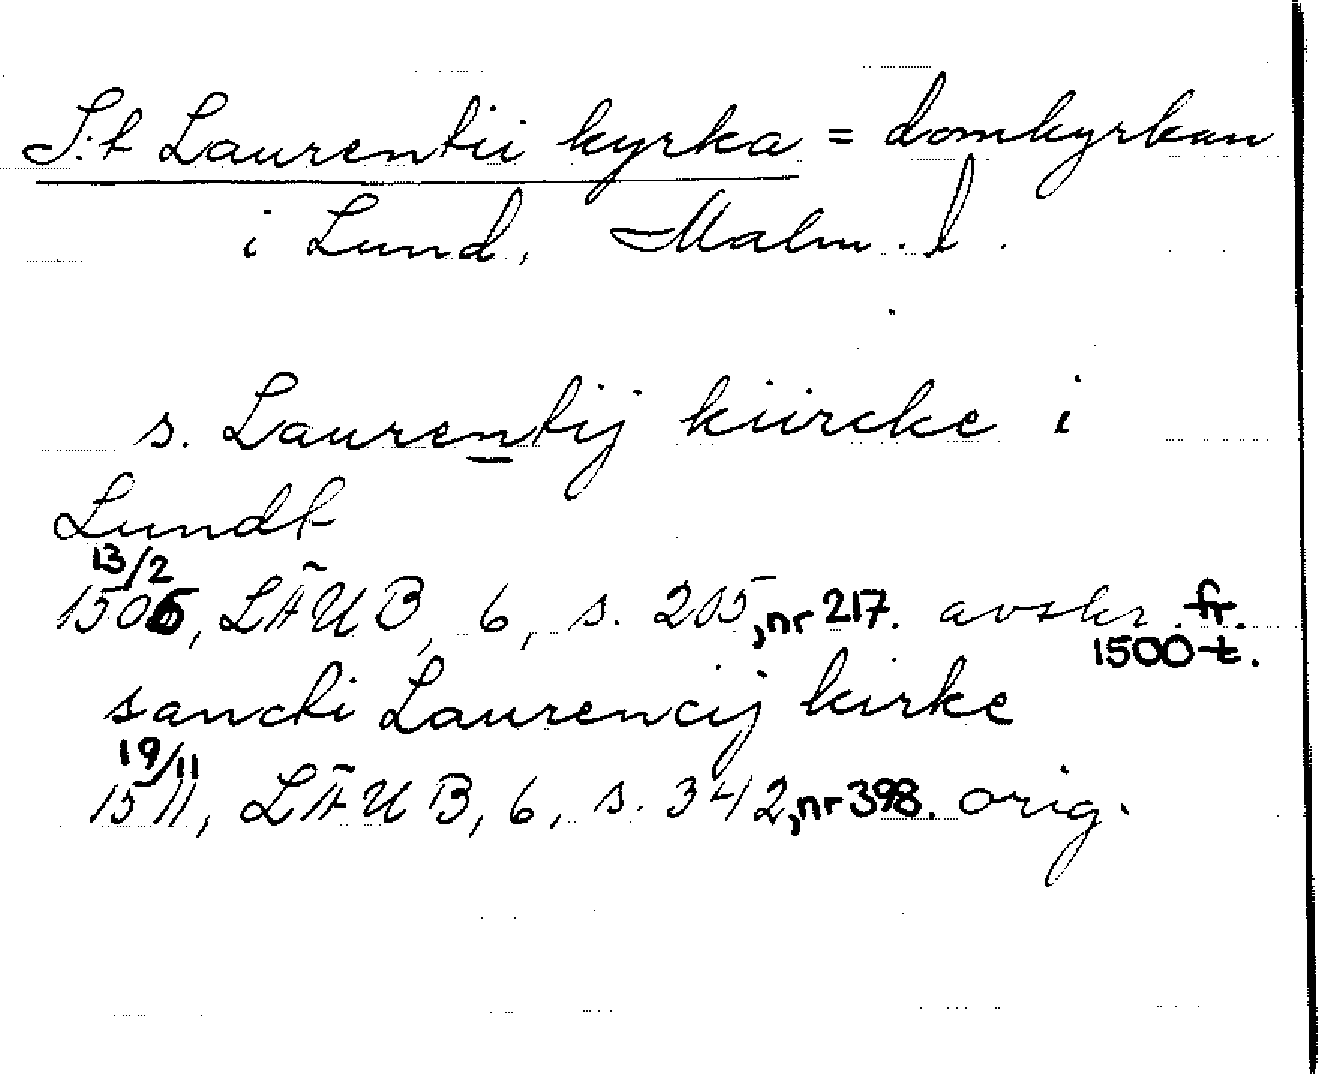 S:t Laurentii kyrka = domkyrkan
i Lund, Malm. l.
s. Laurentij kiircke i
Lundt
13/2
1506, LÄUB, 6, s. 205, nr 217. avskr. fr.
1500-t.
sancti Laurencij kirke
19/11
1511, LÄUB, 6, s. 342, nr 398. orig.